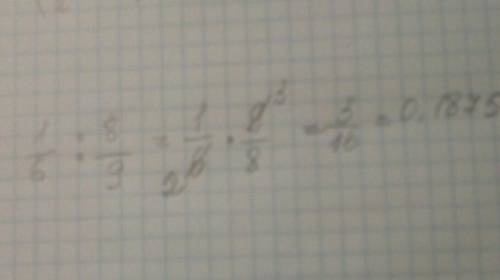 1/6 : 8/9 = 1/6 2 · 9 3/8 = 3/16 = 0,1875